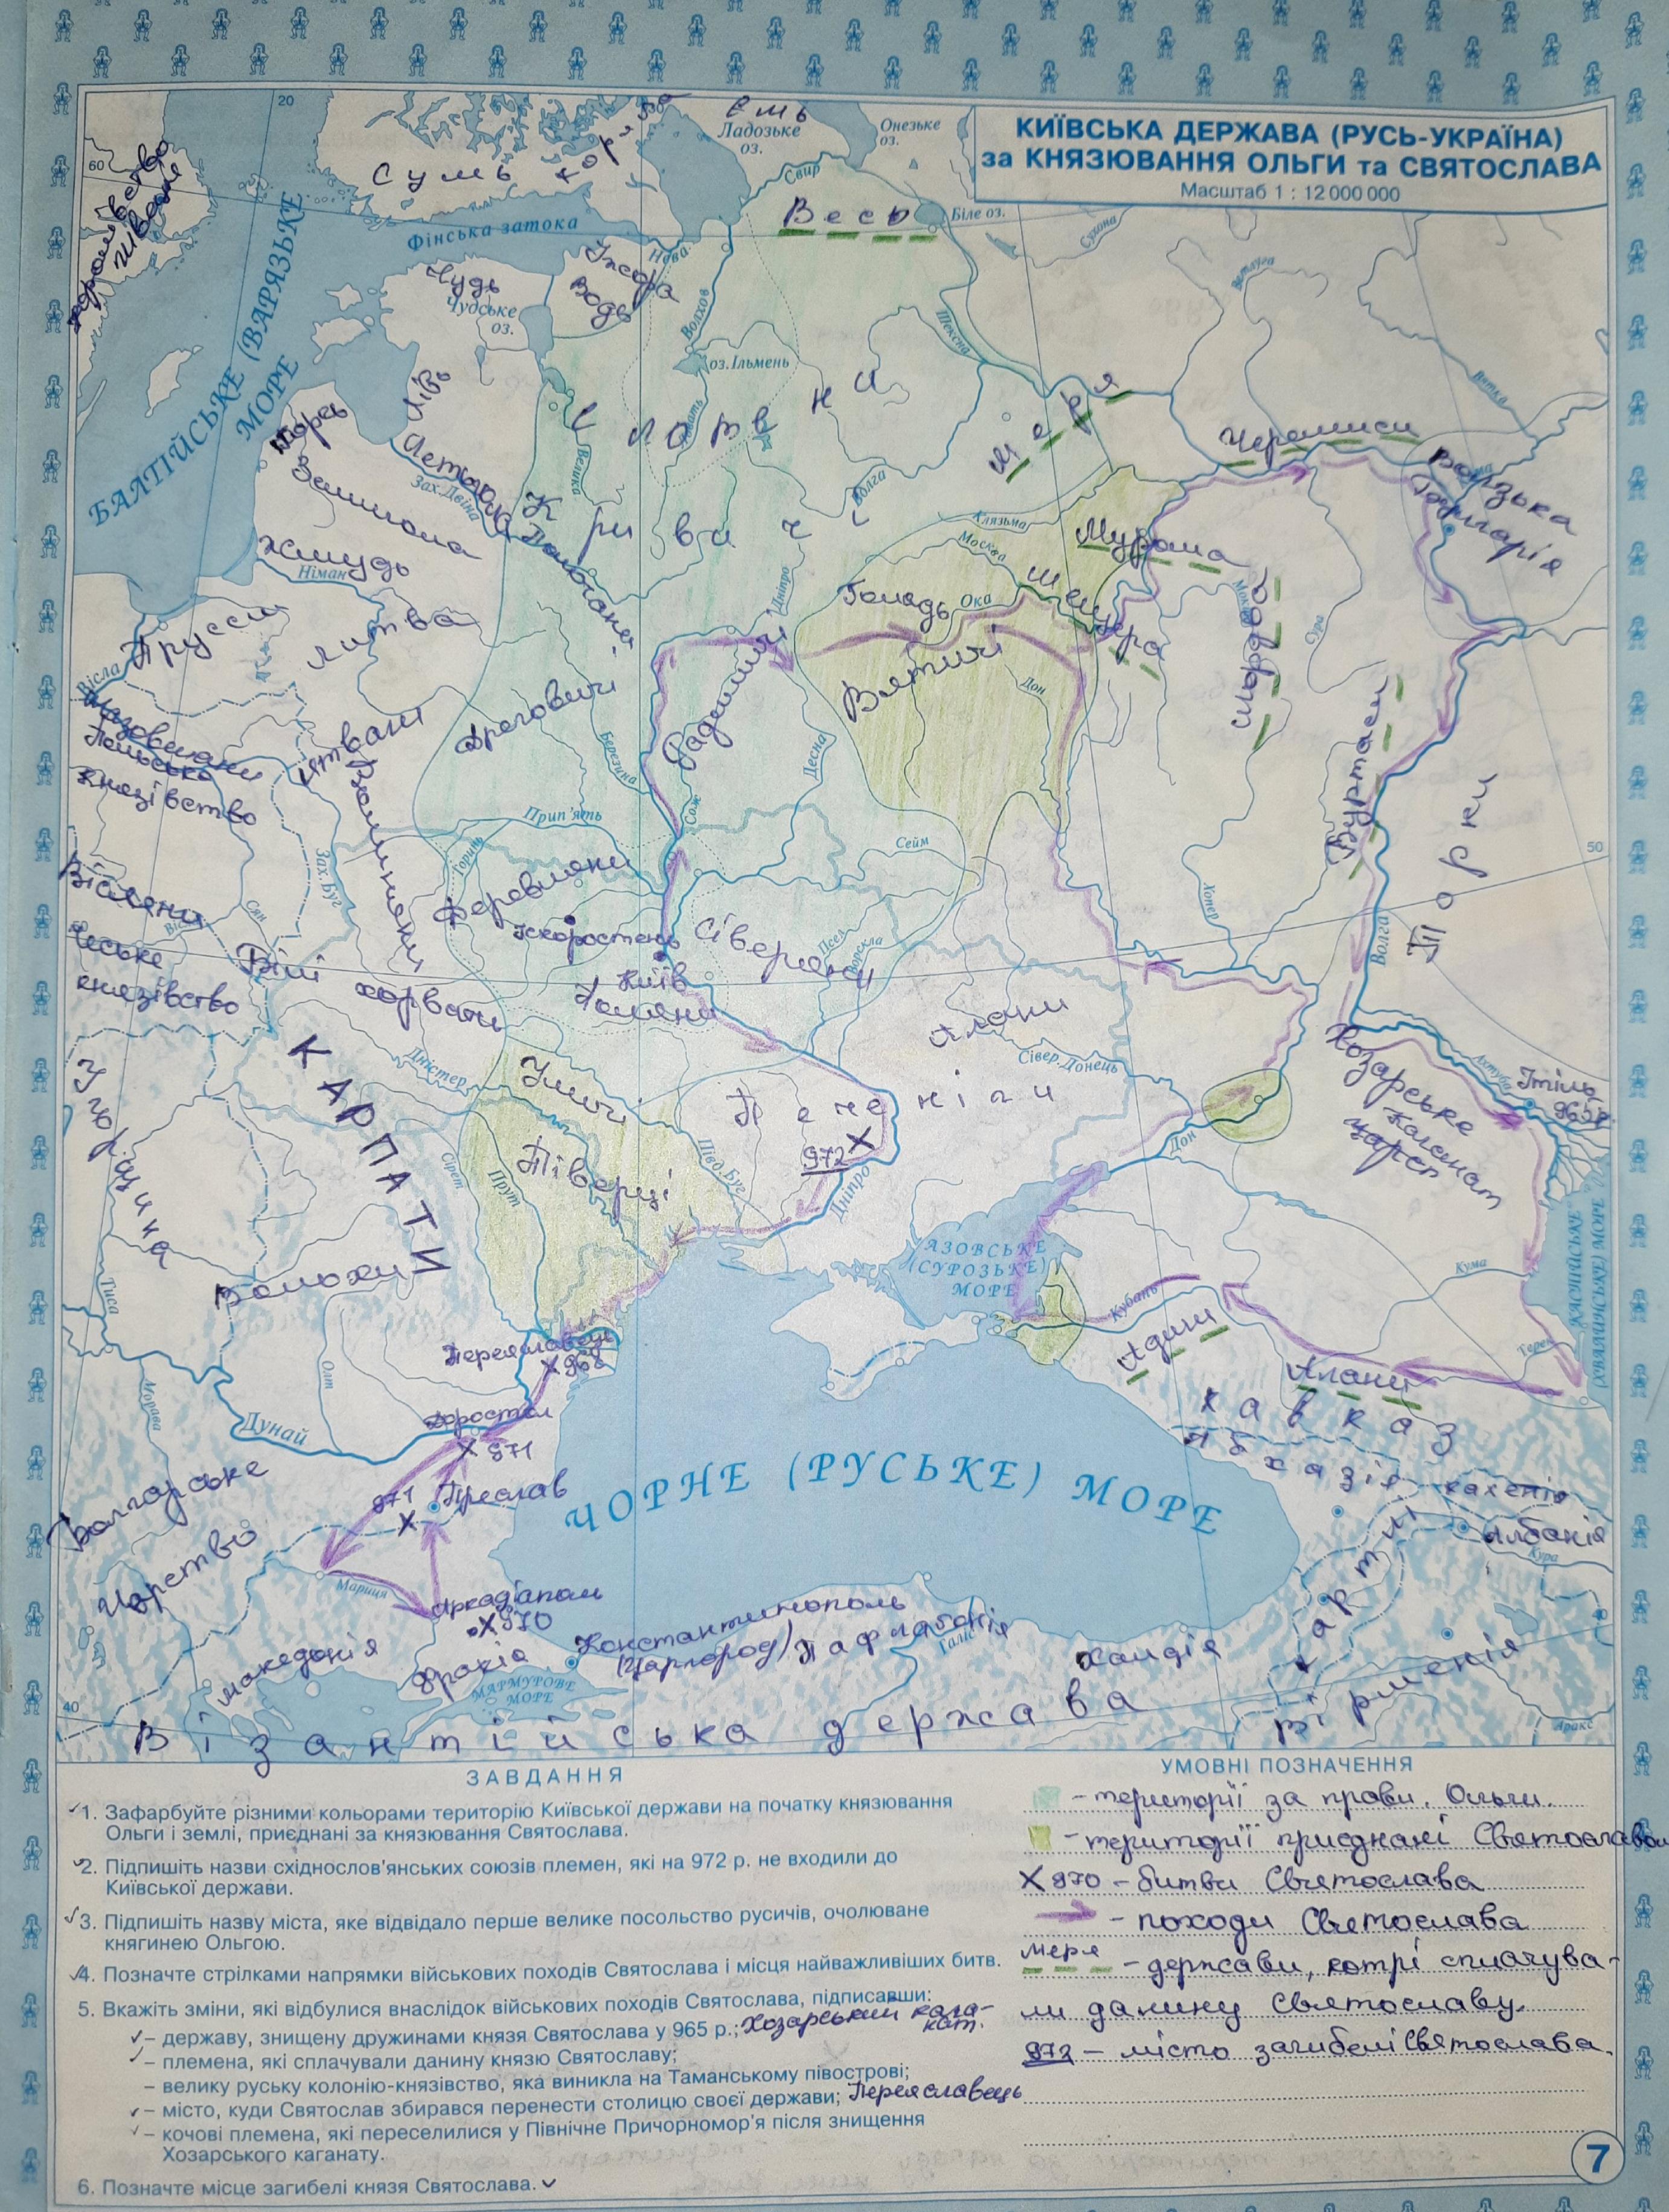 КИЇВСЬКА ДЕРЖАВА (РУСЬ-УКРАЇНА)
за КНЯЗЮВАННЯ ОЛЬГИ та СВЯТОСЛАВА
Масштаб 1 : 12 000 000
20
30
60
Ємь
Ладозьке
оз.
Онезьке
оз.
Сумь
Корела
Свир
Королівство
Шведське
Весь
Біле оз.
Сухона
Фінська затока
Нева
Іжора
Водь
Чудь
Чудське
оз.
Ветлуга
Волхов
Шексна
БАЛТІЙСЬКЕ (ВАРЯЗЬКЕ
МОРЕ
оз.Ільмень
Словени
Ловать
Вятка
Лівь
Меря
Корсь
Черемиси
Летгола
Зах.Двіна
Велика
Волга
Кама
Волзька
Болгарія
Зимигола
Кривичі
Клязьма
Москва
Мурома
Жмудь
Німан
Полочани
Дніпро
Голядь
Ока
Мещера
Мокша
Пруссы
Литва
Мордва
Сура
Вісла
Радимичі
Вятичі
Дон
Мазовшани
Польське
князівство
Ятвяги
Дреговичі
Березина
Десна
Буртаси
Волиняни
Торки
Прип'ять
Сож
Сейм
50
Зах.Буг
Горинь
Віслени
Деревляни
Хопер
Сян
Вісла
Іскоростень
Сіверяни
Псел
Ворскла
Волга
Чеське
князівство
Білі
хорвати
Київ
Поляни
Алани
Сівер.Донець
Хозарське
царст
Каганат
Ахтуба
Ітіль
965 р
КАРПАТИ
Дністер
Уличі
Печеніги
972 X
Угорщина
Тіверці
Сірет
Прут
Півд.Буг
Дніпро
Дон
АЗОВСЬКЕ
(СУРОЗЬКЕ)
МОРЕ
КАСПІЙСЬКЕ
(ХВАЛИНСЬКЕ) МОРЕ
Кума
Волохи
Тиса
Кубань
Адиги
Терек
Переяславець
X 968
Алани
Олт
Морава
Доростол
X 971
Кавказ
Дунай
Абхазія
Кахетія
Болгарське
Царство
971
X
Преслав
ЧОРНЕ (РУСЬКЕ) МОРЕ
Албанія
Кура
Картлі
Мариця
Аркадіополь
X 970
Константинополь
(Царгород)
Пафлагонія
Галіс
Халдія
Вірменія
40
Македонія
Фракія
МАРМУРОВЕ
МОРЕ
Аракс
40
Візантійська держава
ЗАВДАННЯ
1. Зафарбуйте різними кольорами територію Київської держави на початку князювання
Ольги і землі, приєднані за князювання Святослава.
2. Підпишіть назви східнослов'янських союзів племен, які на 972 р. не входили до
Київської держави.
3. Підпишіть назву міста, яке відвідало перше велике посольство русичів, очолюване
княгинею Ольгою.
4. Позначте стрілками напрямки військових походів Святослава і місця найважливіших битв.
5. Вкажіть зміни, які відбулися внаслідок військових походів Святослава, підписавши:
– державу, знищену дружинами князя Святослава у 965 р.; Хозарський кага-
нат.
– племена, які сплачували данину князю Святославу;
– велику руську колонію-князівство, яка виникла на Таманському півострові;
– місто, куди Святослав збирався перенести столицю своєї держави; Переяславець
– кочові племена, які переселилися у Північне Причорномор'я після знищення
Хозарського каганату.
6. Позначте місце загибелі князя Святослава.
УМОВНІ ПОЗНАЧЕННЯ
- території за правл. Ольги.
- території приєднані Святославом
X 970 - битви Святослава
- походи Святослава
меря - держави, котрі сплачува-
ли данину Святославу.
972 - місто загибелі Святослава.
7